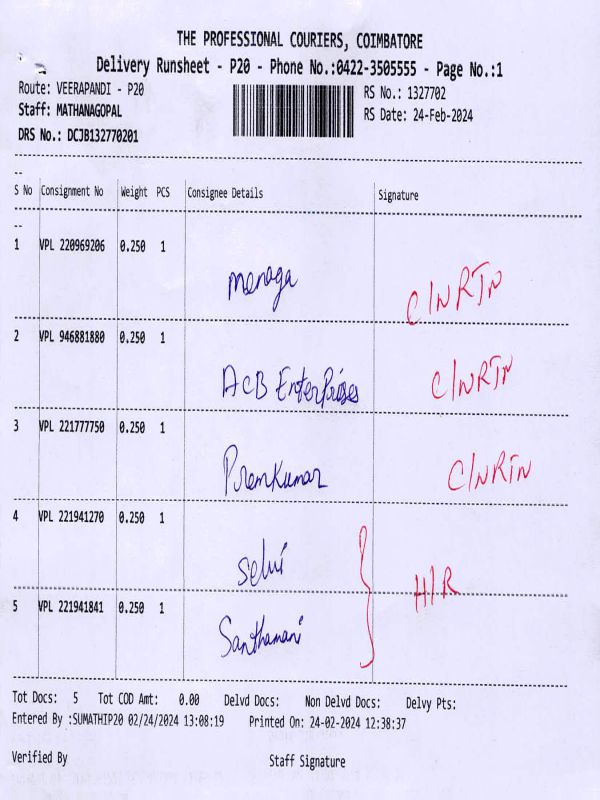 THE PROFESSIONAL COURIERS, COIMBATORE
Delivery Runsheet - P20 - Phone No.:0422-3505555 - Page No.:1
Route: VEERAPANDI - P20 RS No.: 1327702
Staff: MATHANAGOPAL RS Date: 24-Feb-2024
DRS No.: DCJB132770201
--
S No Consignment No Weight PCS Consignee Details Signature
--
1 VPL 220969206 0.250 1
menaga C/NRTN
2 VPL 946881880 0.250 1
ACB Enterprises C/NRTN
3 VPL 221777750 0.250 1
Premkumar C/NRTN
4 VPL 221941270 0.250 1
Selvi
H/R
5 VPL 221941841 0.250 1
Santhamani
Tot Docs: 5 Tot COD Amt: 0.00 Delvd Docs: Non Delvd Docs: Delvy Pts:
Entered By :SUMATHIP20 02/24/2024 13:08:19 Printed On: 24-02-2024 12:38:37
Verified By Staff Signature